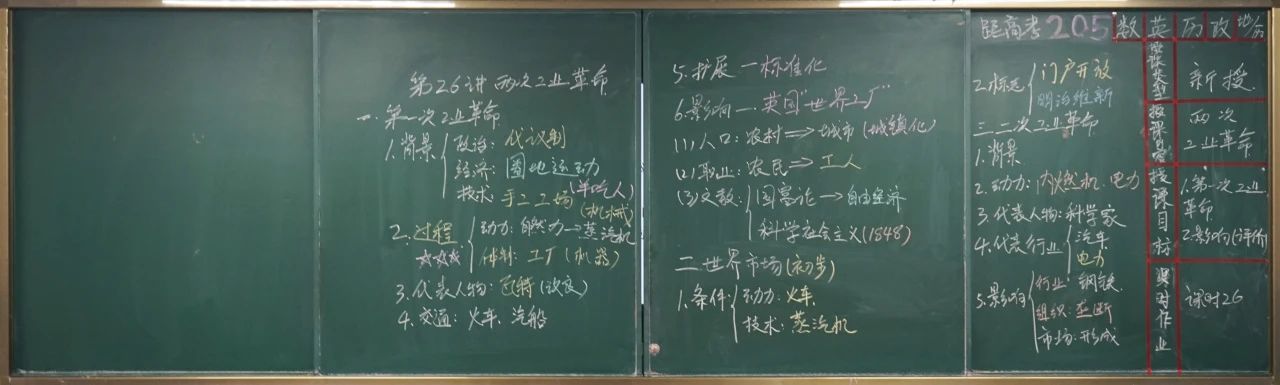 第26讲 两次工业革命
一.第一次工业革命
1.背景
政治：代议制
经济：圈地运动
(羊吃人)
技术：手工工场(机械)
2.过程
☆☆☆
动力：自然力→蒸汽机
体制：工厂(机器)
3.代表人物：瓦特(改良)
4.交通：火车、汽船
5.扩展—标准化
6.影响—英国"世界工厂"
(1)人口：农村⇒城市(城镇化)
(2)职业：农民⇒工人
(3)文教：
国富论→自由经济
科学社会主义(1848)
二.世界市场(初步)
1.条件：
动力：火车、
技术：蒸汽机
距高考205
2.标志
门户开放
明治维新
三.二次工业革命
1.背景
2.动力：内燃机、电力
3.代表人物：科学家
4.代表行业
汽车
电力
5.影响
行业：钢铁
组织：垄断
市场：形成
数 英 历 政 地
授课类型
新授
授课内容
两次
工业革命
授课目标
1.第一次工业
革命
2.影响(评价)
课时作业
课时26